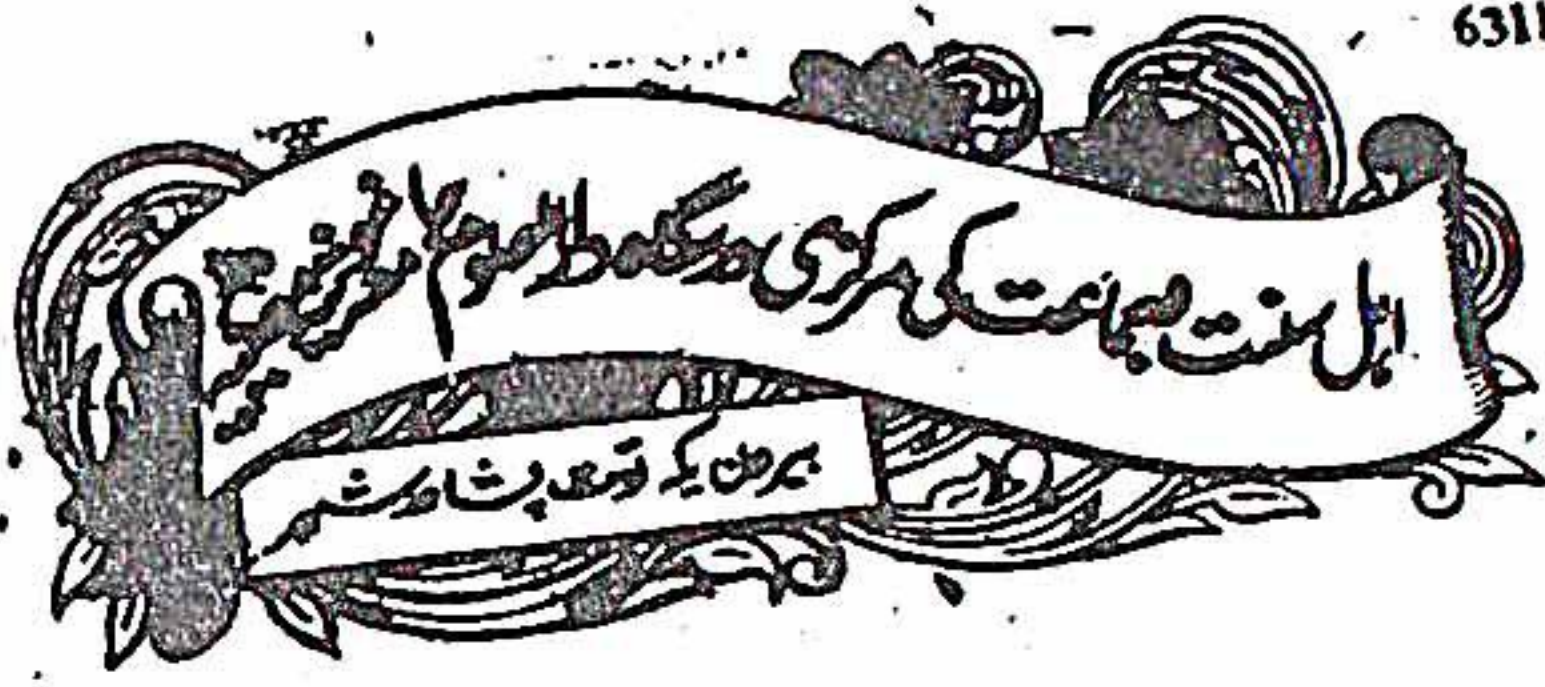 6311
اہل سنت جماعت کی مرکزی درسگاہ دارالعلوم
بیرون یکہ توت پشاور شہر